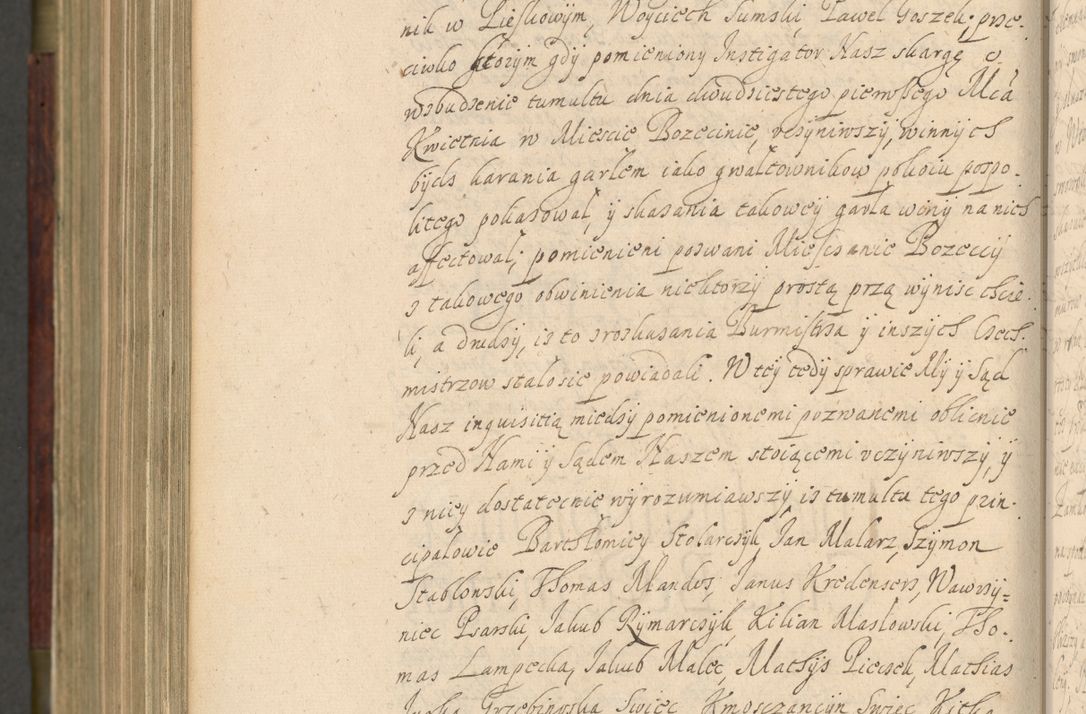 nik w Pieskowym, Woyciech Sumski Paweł Goszek; prze-
ciwko ktorym gdy pomieniony Instigator Nasz skargę o
wzbudzenie tumultu dnia dwudziestego pierwszego Mca
Kwietnia w Miescie Bozecinie, vczyniwszy, winnych
bydz karania garłem iako gwałtownikow pokoiu pospo-
litego pokazował, y skazania takowey garła winy na nich
affectował; pomienieni pozwani Miesczanie Bozeccy
z takowego obwinienia niektorzy prostą przą wynisc chcie-
li, a drudzy, iz to z roskazania Burmistrza y inszych Cech-
mistrzow stało sie powiadali. W tey tedy sprawie My y Sąd
Nasz inquisitią miedzy pomienionemi pozwanemi oblicnie
przed Nami y Sądem Naszem stoiącemi vczyniwszy, y
z niey dostatecnie wyrozumiawszy iz tumultu tego prin-
cipałowie Barthłomiey Stolarczyk, Jan Malarz, Szymon
Stablonski, Thomas Mandes, Janus Kredenserz, Wawrzy=
niec Psarski, Jakub Rymarczyk, Kilian Masłowski, Tho-
mas Lampecka, Jakub Malec, Mathys Piecsek, Mathias